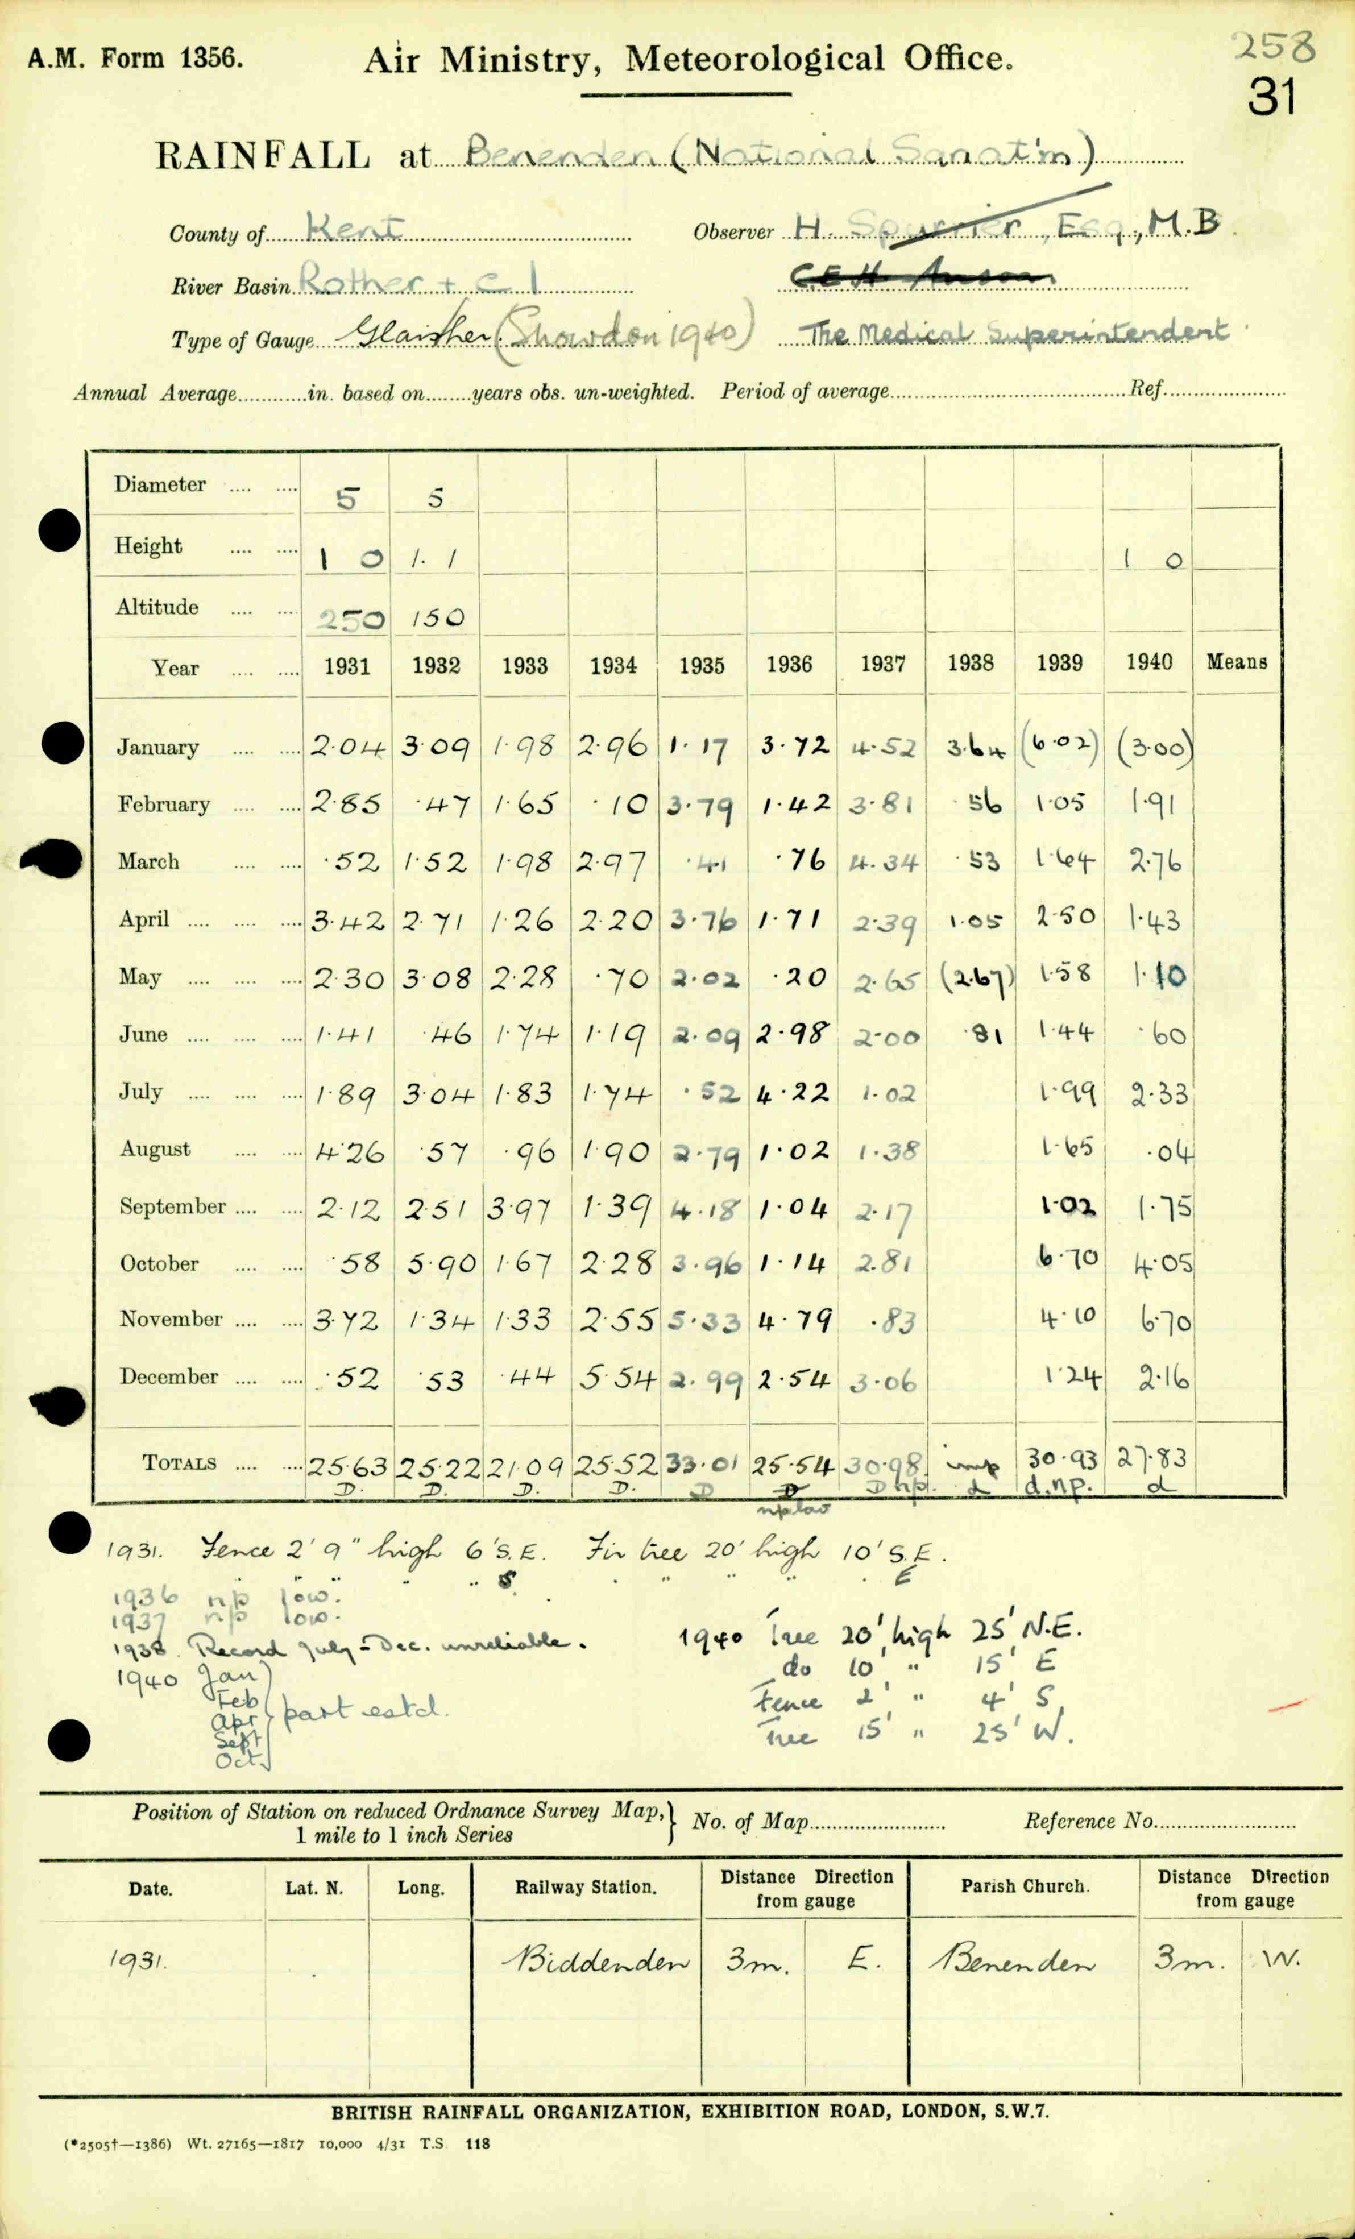 258
A.M. Form 1356. Air Ministry, Meteorological Office.
31
RAINFALL at Benenden (National Sanat'm)
County of Kent Observer H. Spurrier, Esq., M.B.
River Basin Rother + c l C.E.H. Anson
Type of Gauge Glaisher (Snowdon 1940) The Medical Superintendent
Annual Average in. based on years obs. un-weighted. Period of average Ref.
Diameter 5 5
Height 1 0 1. 1 1 0
Altitude 250 150
Year 1931 1932 1933 1934 1935 1936 1937 1938 1939 1940 Means
January 2.04 3.09 1.98 2.96 1.17 3.72 4.52 3.64 (6.02) (3.00)
February 2.85 .47 1.65 .10 3.79 1.42 3.81 .56 1.05 1.91
March .52 1.52 1.98 2.97 .41 .76 4.34 .53 1.64 2.76
April 3.42 2.71 1.26 2.20 3.76 1.71 2.39 1.05 2.50 1.43
May 2.30 3.08 2.28 .70 2.02 .20 2.65 (2.67) 1.58 1.10
June 1.41 .46 1.74 1.19 2.09 2.98 2.00 .81 1.44 .60
July 1.89 3.04 1.83 1.74 .52 4.22 1.02 1.99 2.33
August 4.26 .57 .96 1.90 2.79 1.02 1.38 1.65 .04
September 2.12 2.51 3.97 1.39 4.18 1.04 2.17 1.02 1.75
October .58 5.90 1.67 2.28 3.96 1.14 2.81 6.70 4.05
November 3.72 1.34 1.33 2.55 5.33 4.79 .83 4.10 6.70
December .52 .53 .44 5.54 2.99 2.54 3.06 1.24 2.16
TOTALS 25.63 25.22 21.09 25.52 33.01 25.54 30.98 imp 30.93 27.83
D. D. D. D. D D D np. d d.np. d
np low
1931. Fence 2' 9" high 6' S.E. Fir tree 20' high 10' S.E.
" " " " S. " " " " " E
1936 np low.
1937 np low.
1938. Record July - Dec. unreliable.
1940 Jan
Feb
Apr
Sept
Oct
part estd.
1940 Tree 20' high 25' N.E.
do 10' " 15' E
Fence 2' " 4' S
Tree 15' " 25' W.
Position of Station on reduced Ordnance Survey Map, No. of Map Reference No.
1 mile to 1 inch Series
Date. Lat. N. Long. Railway Station. Distance Direction from gauge Parish Church. Distance Direction from gauge
1931. Biddenden 3m. E. Benenden 3m. W.
BRITISH RAINFALL ORGANIZATION, EXHIBITION ROAD, LONDON, S.W.7.
(*2505†—1386) Wt. 27165—1817 10,000 4/31 T.S. 118